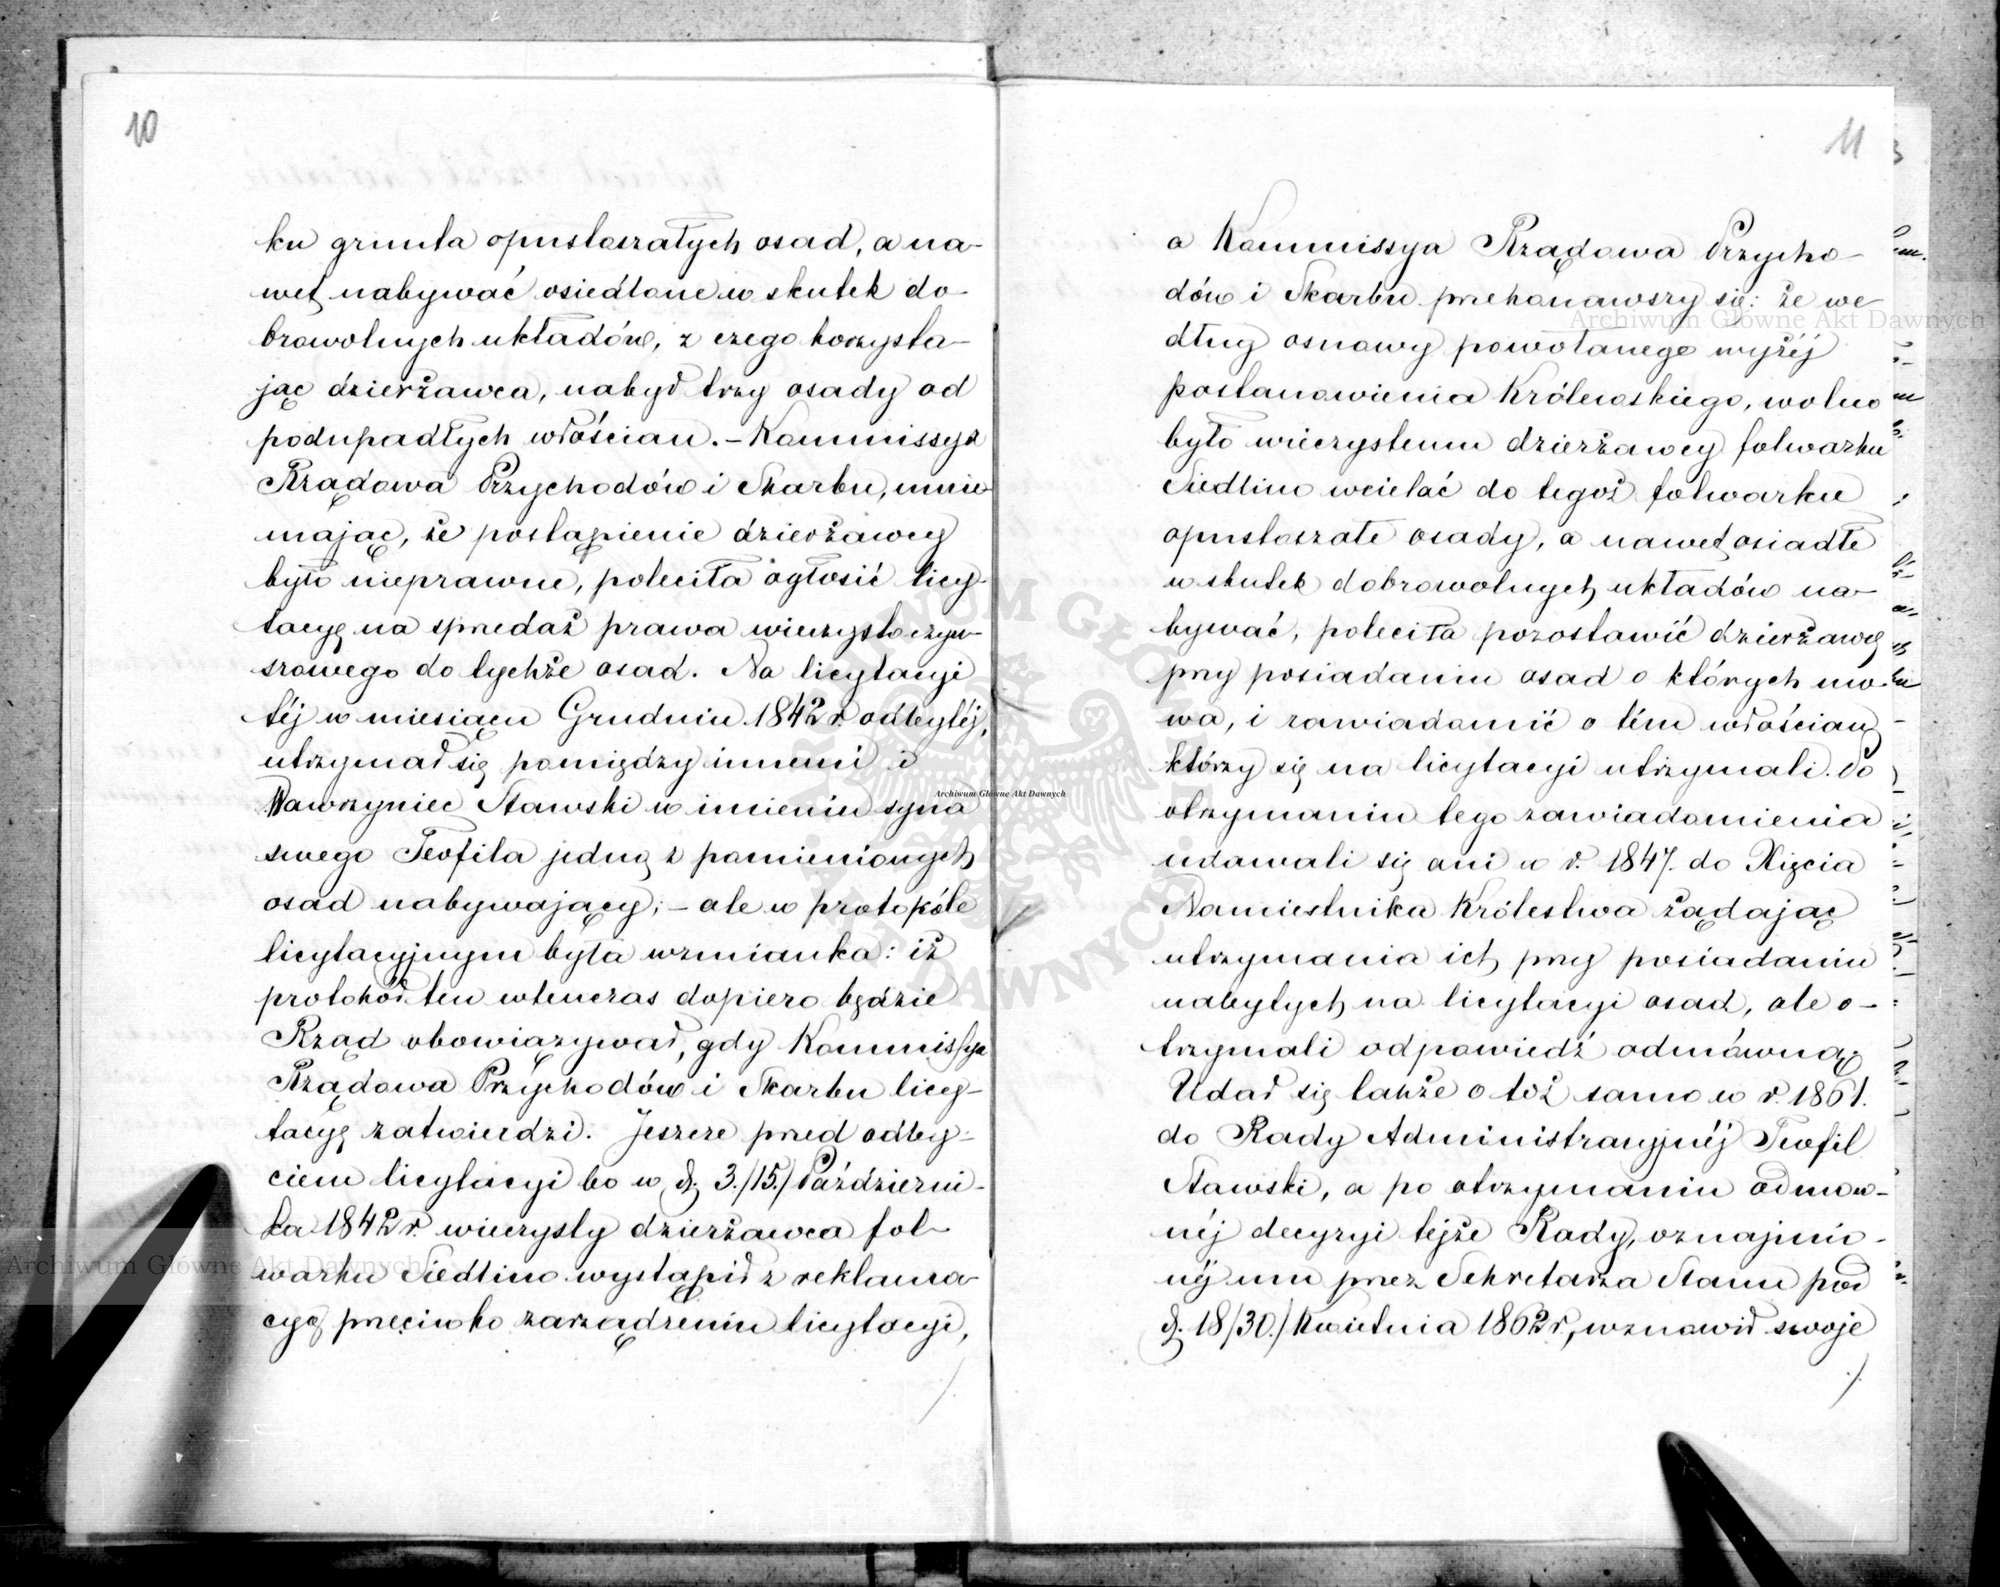 10
ku grunta opustoszałych osad, a na-
wet nabywać osiedlone w skutek do-
browolnych układów, z czego korzysta-
jąc dzierżawca, nabył trzy osady od
podupadłych włościan. – Kommissya
Rządowa Przychodów i Skarbu, mnie-
mając, że postąpienie dzierżawcy
było nieprawne, poleciła ogłosić licy-
tacyę na sprzedaż prawa wieczysto czyn-
szowego do tychże osad. Na licytacyi
téj w miesiącu Grudniu 1842 r. odbytéj,
utrzymał się pomiędzy innemi i
Wawrzyniec Stawski w imieniu syna
swego Teofila jedną z pomienionych
osad nabywający; – ale w protokóle
licytacyjnym była wzmianka: iż
protokół ten wtenczas dopiero będzie
Rząd obowiązywał, gdy Kommissya
Rządowa Przychodów i Skarbu licy-
tacyę zatwierdzi. Jeszcze przed odby-
ciem licytacyi bo w d. 3./15./ Październi-
ka 1842 r. wieczysty dzierżawca fol-
warku Siedlino wystąpił z reklama-
cyą przeciwko zarządzeniu licytacyi,
./.
11
a Kommissya Rządowa Przycho-
dów i Skarbu przekonawszy się: że we-
dług osnowy powołanego wyżéj
postanowienia Królewskiego, wolno
było wieczystemu dzierżawcy folwarku
Siedlino wcielać do tegoż folwarku
opustoszałe osady, a nawet osiadłe
w skutek dobrowolnych układów na-
bywać, poleciła pozostawić dzierżawcę
przy posiadaniu osad o których mo-
wa, i zawiadomić o tém włościan
którzy się na licytacyi utrzymali. Po
otrzymaniu tego zawiadomienia
udawali się oni w r. 1847. do Xięcia
Namiestnika Królestwa żądając
utrzymania ich przy posiadaniu
nabytych na licytacyi osad, ale o-
trzymali odpowiedź odmówną.
Udał się także o toż samo w r. 1861.
do Rady Administracyjnéj Teofil
Stawski, a po otrzymaniu odmow-
néj decyzyi tejże Rady, oznajmio-
néj mu przez Sekretarza Stanu pod
d. 18/30./ Kwietnia 1862 r, wznowił swoje
./.
Archiwum Główne Akt Dawnych
Archiwum Główne Akt Dawnych
Archiwum Główne Akt Dawnych